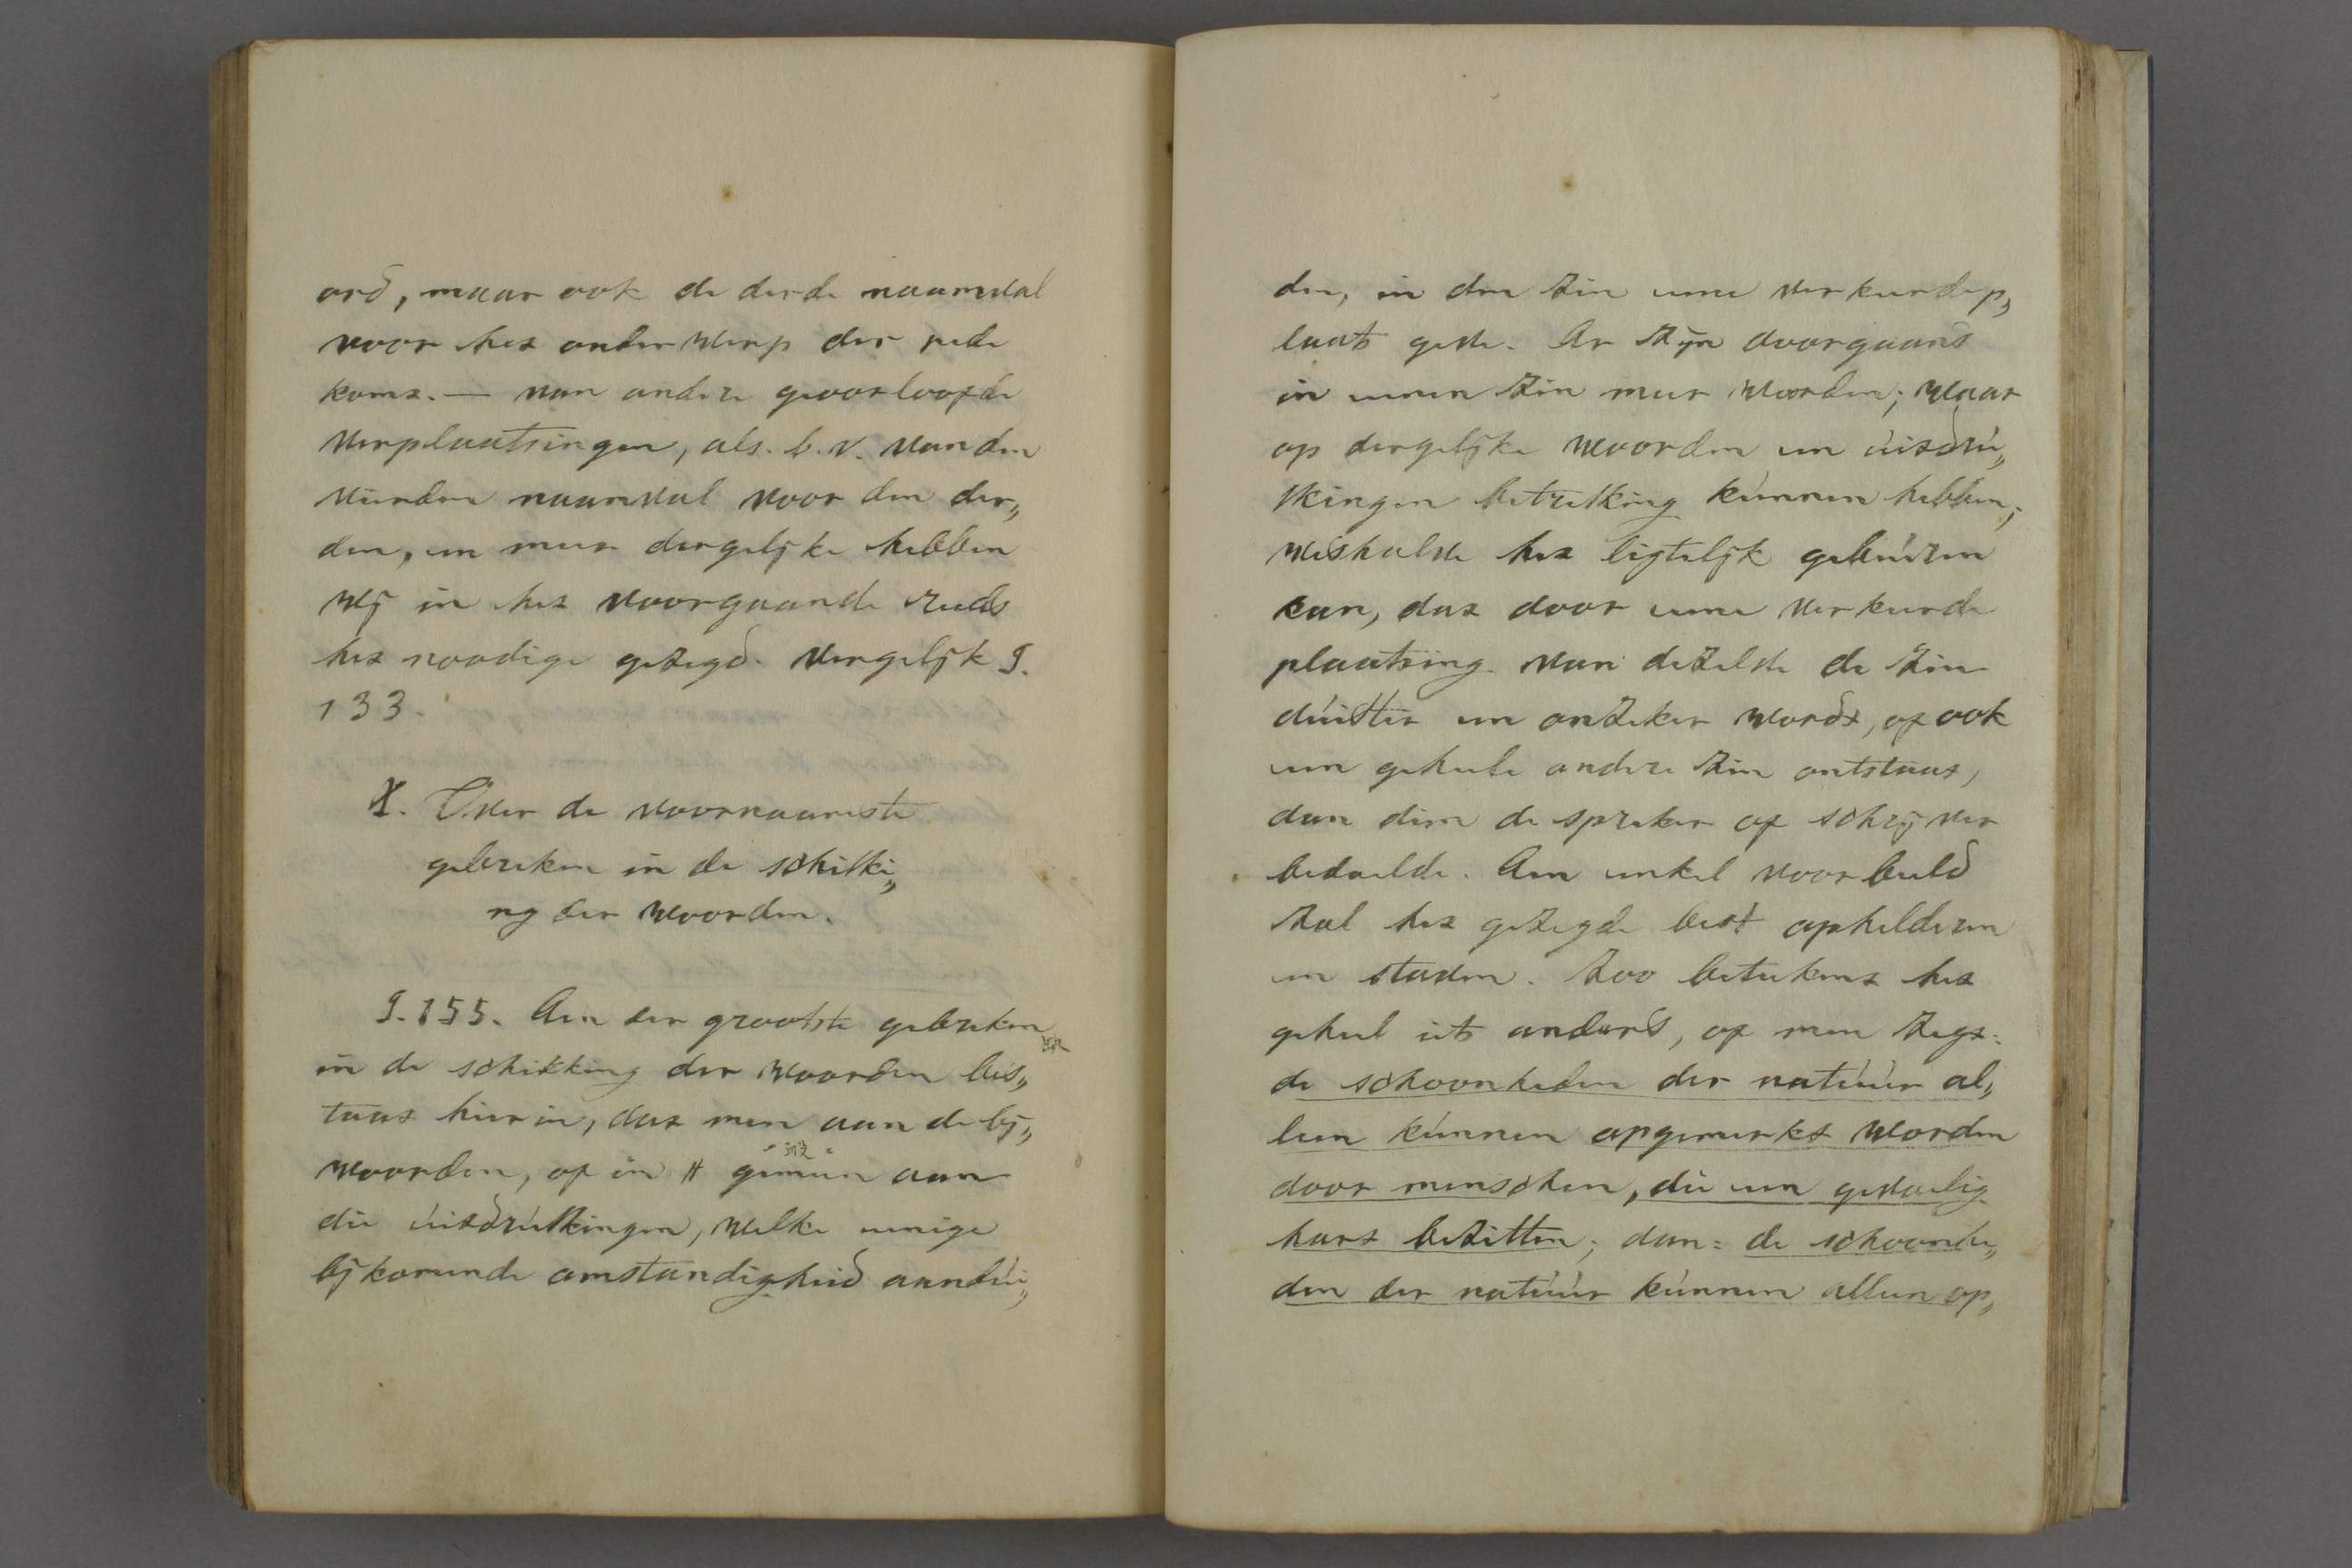 ord, maar ook de derde naamval
voor het onderwerp der rede
komt. — van andere geoorloofde
verplaatsingen, als. b. v. van den
vierden naamval voor den der„
den, en meer dergelijke hebben
wij in het voorgaande reeds
het noodige gezegd. vergelijk §.
133.
X. Over de voornaamste
gebreken in de schikki„
ng der woorden.
§. 155. Een der grootste gebreken
in de schikking der woorden bes„
taat hierin, dat men aan de bij„
woorden, of in 't gemeen aan
die uitdrukkingen, welke eenige
bijkomende omstandigheid aandui„
den, in den zin eene verkeerde p„
laats geve. Er zijn doorgaans
in eenen zin meer woorden; waar
op dergelijke woorden en uitdru„
kkingen betrekking kunnen hebben;
weshalve het ligtelijk gebeuren
kan, dat door eene verkeerde
plaatsing van dezelve de zin
duister en onzeker wordt, of ook
een geheele andere zin ontstaat,
dan dien de spreker of schrijver
bedoelde. Een enkel voorbeeld
zal het gezegde best ophelderen
en staven. Zoo beteekent het
geheel iets anders, of men zegt:
de schoonheden der natuur al„
leen kunnen opgemerkt worden
door menschen, die een gevoelig
hart bezitten; dan: de schoonhe„
den der natuur kunnen alleen op„